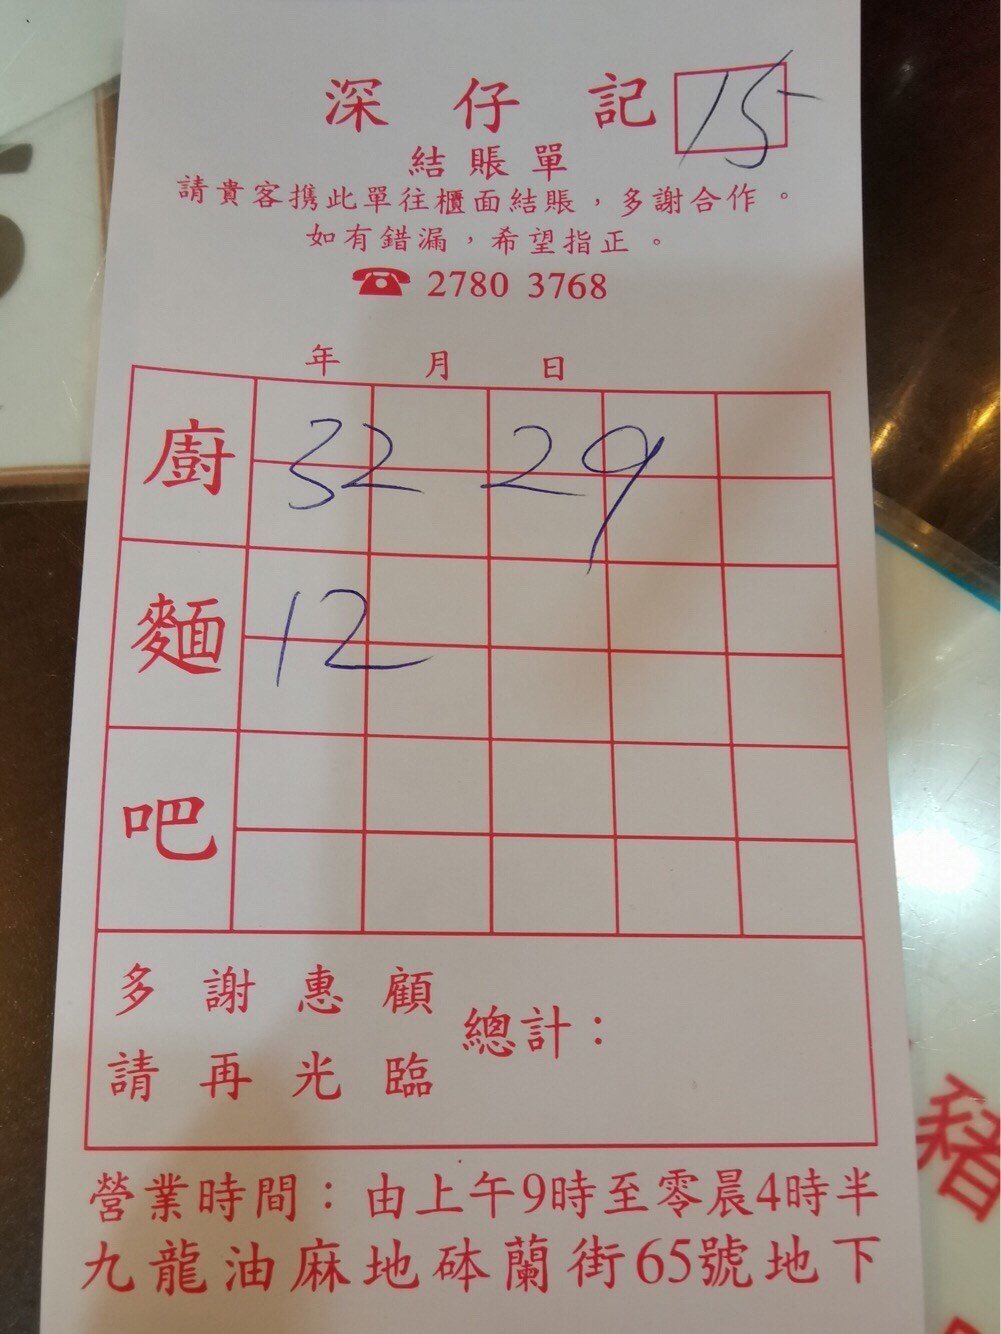 深仔記 15
結賬單
請貴客携此單往櫃面結賬，多謝合作。
如有錯漏，希望指正。
☎ 2780 3768
年 月 日
廚 32 29
麵 12
吧
多謝惠顧
請再光臨
總計：
營業時間：由上午9時至零晨4時半
九龍油麻地砵蘭街65號地下
豬